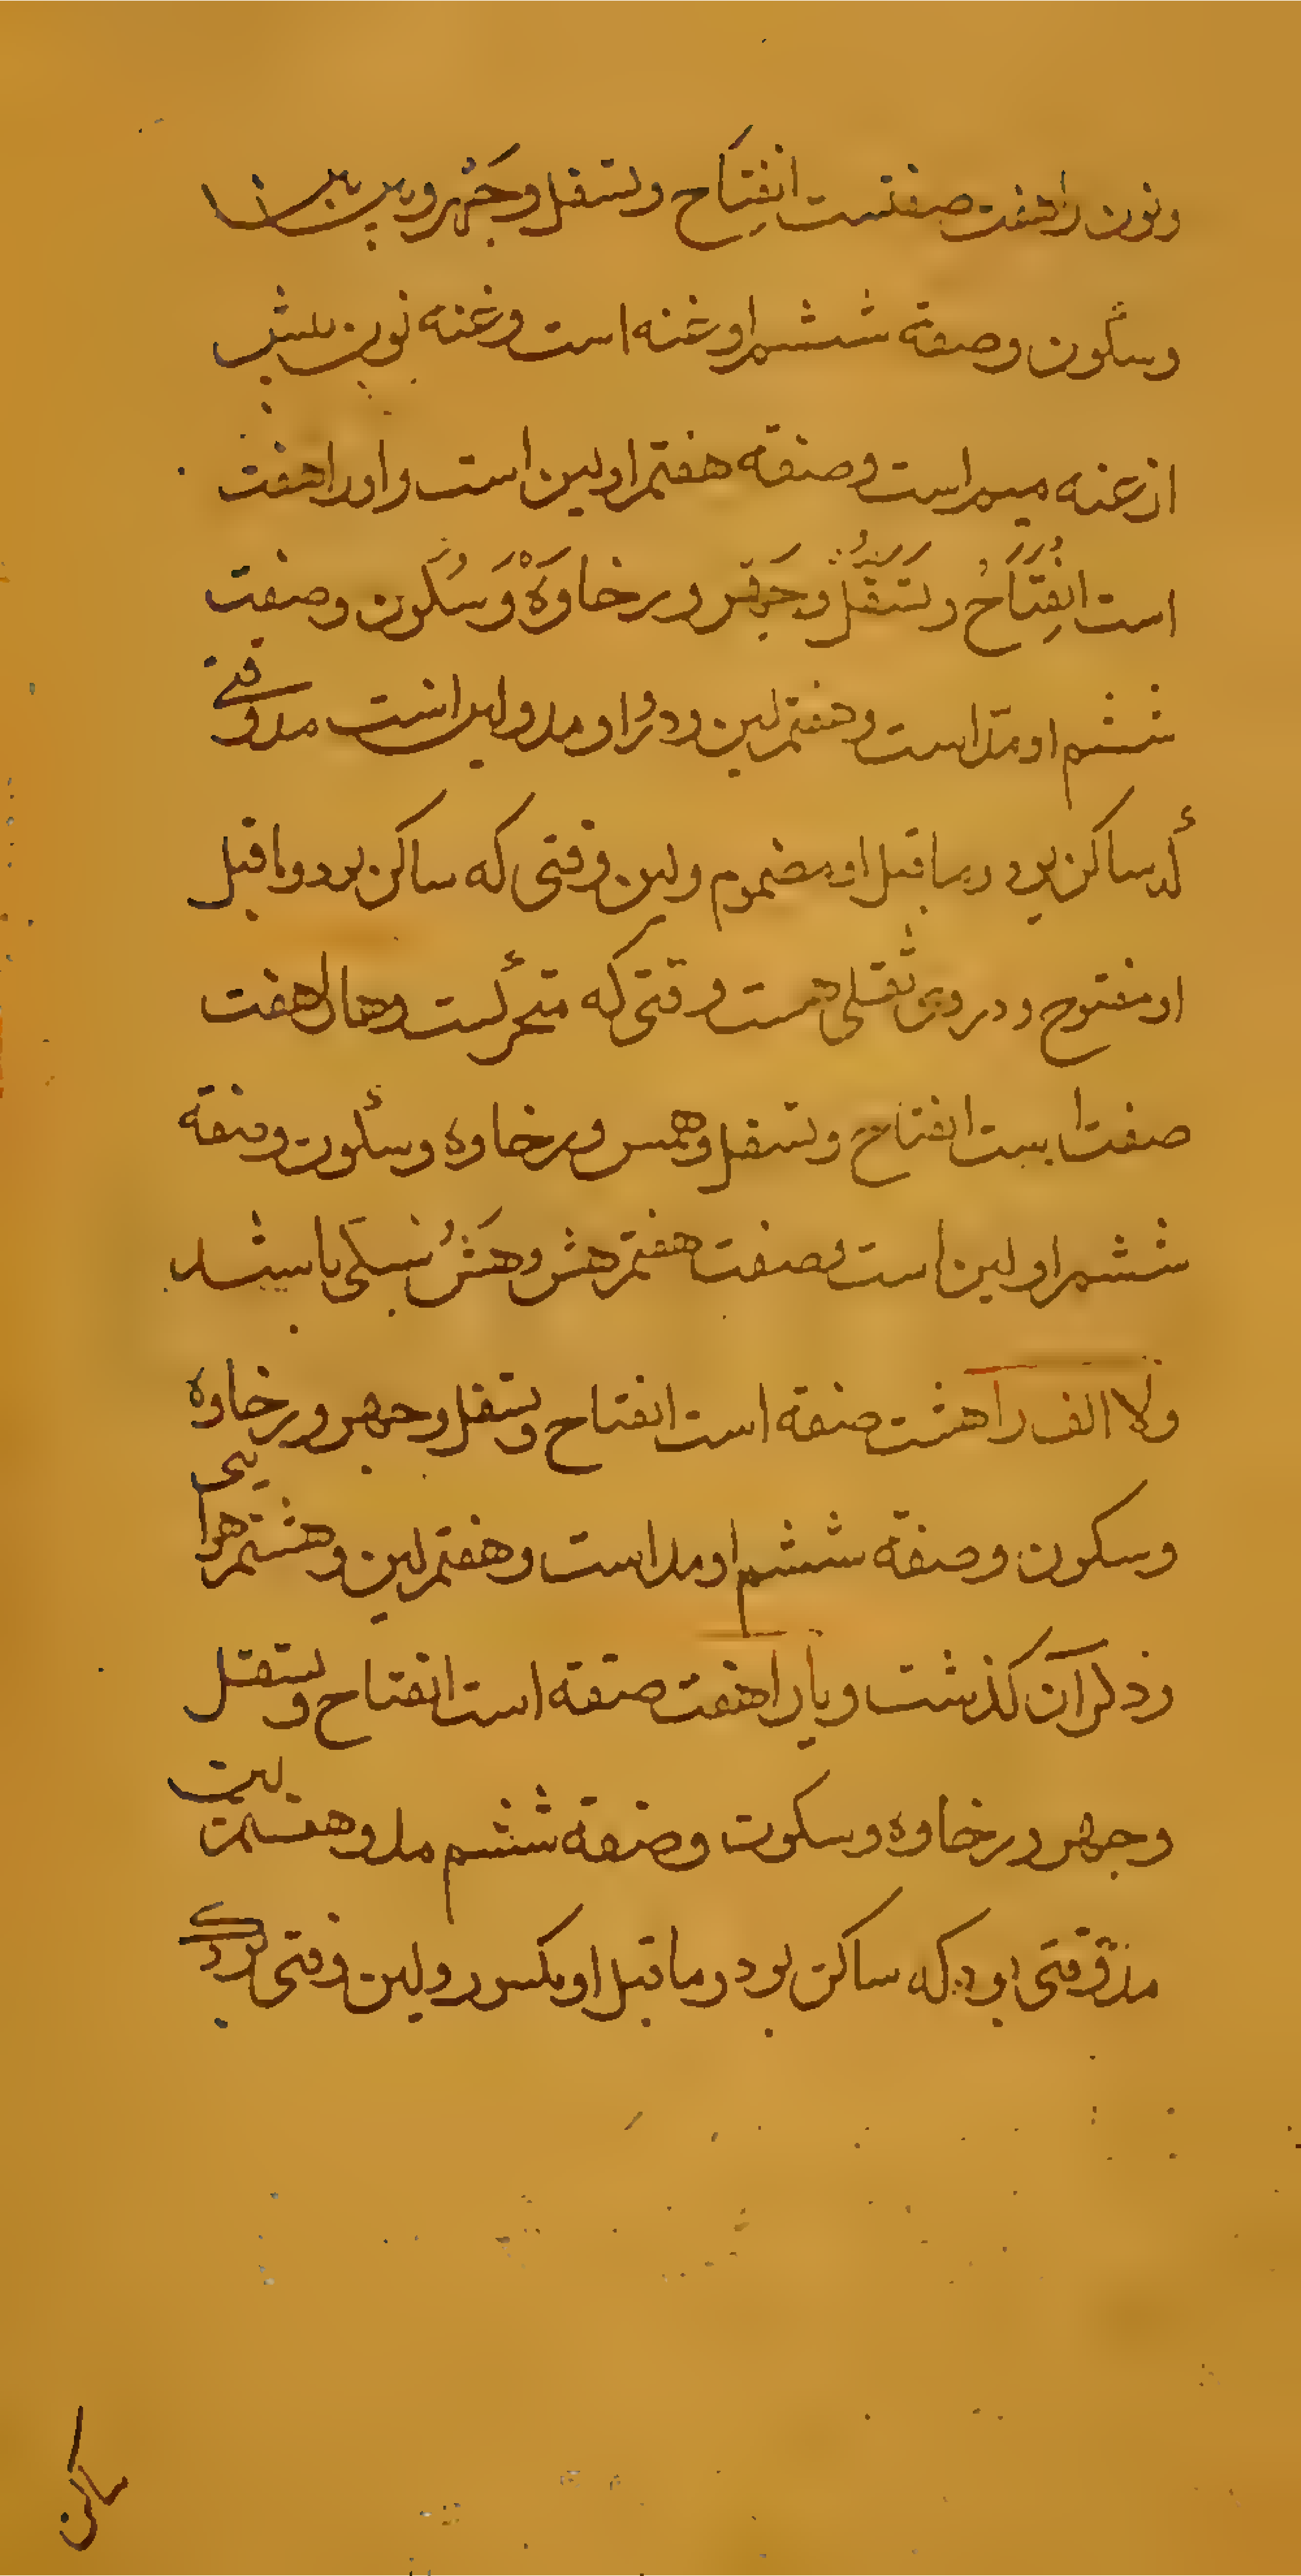 ونون را هفت صفتست انفتاح وتسفل وجهر وبین بین
وسکون وصفة ششم او غنه است وغنه نون بیش
از غنه میم است وصفة هفتم او لین است واو را هفت
است انفِتَاحُ وتَسَفُّل وجَهر ورخاوَةْ وَسُکون وصفت
ششم او مدّ است وهفتم لین ودر او مد ولین است مد وقتی
که ساکن بود وما قبل او مضموم ولین وقتی که ساکن بود وما قبل
او مفتوح ودر وی ثقلی هست وقتی که متحرکست وها را هفت
صفت است انفتاح وتسفل وهمس ورخاوه وسکون وصفة
ششم او لین است وصفت هفتم هش وهَشُ سبکی باشد
ولا الف را هشت صفة است انفتاح وتسفل وجهر ورخاوه
وسکون وصفة ششم او مد است وهفتم لین وهشتم هوایی
وذکر آن کذشت ویا را هفت صفة است انفتاح وتسفل
وجهر ورخاوه وسکون وصفة ششم مد وهفتم لین
مد وقتی بود که ساکن بود وما قبل او مکسور ولین وقتی بود که
ساکن